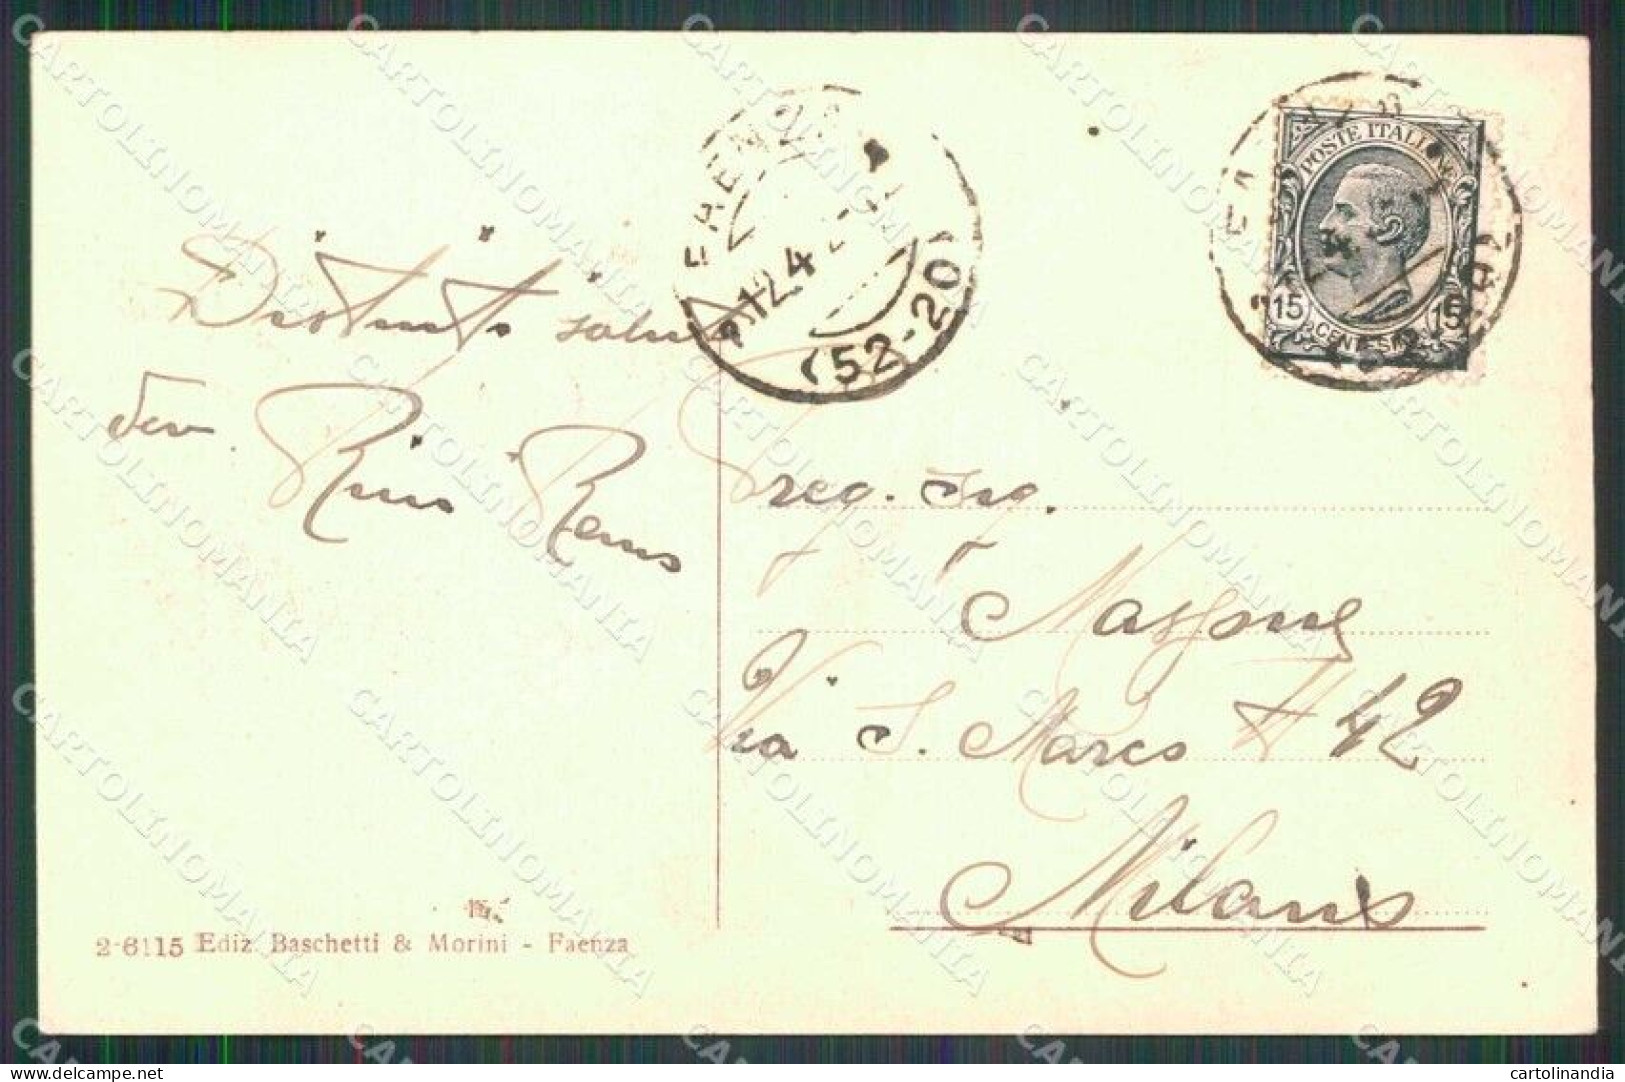 FAENZA
12.4
(52-20)
POSTE ITALIANE
15 15
CENTESIMI
Distinti saluti
dev. Rino Remo
Preg. Ing.
Via S. Marco # 42
Milano
2-6115 Ediz. Baschetti & Morini - Faenza
CARTOLINOMANIA
www.delcampe.net
cartolinandia